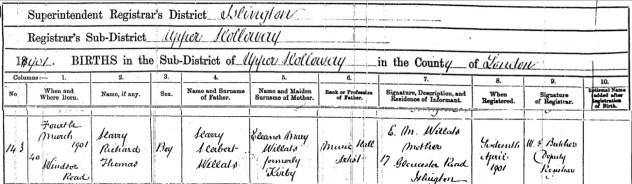 Superintendent Registrar's District Islington
Registrar's Sub-District Upper Holloway
1901. BIRTHS in the Sub-District of Upper Holloway in the County of London
Columns:— 1. 2. 3. 4. 5. 6. 7. 8. 9. 10.
No. When and Where Born. Name, if any. Sex. Name and Surname of Father. Name and Maiden Surname of Mother. Rank or Profession of Father. Signature, Description, and Residence of Informant. When Registered. Signature of Registrar. Baptismal Name if added after Registration of Birth.
143
Fourth
March
1901
40
Windsor
Road
Harry
Richard
Thomas
Boy
Harry
Herbert
Willats
Eleanor Mary
Willats
formerly
Kirby
Music Hall
Artist
E. M. Willats
Mother
17 Gloucester Road
Islington
Sixteenth
April
1901
W. E. Butcher
Deputy
Registrar